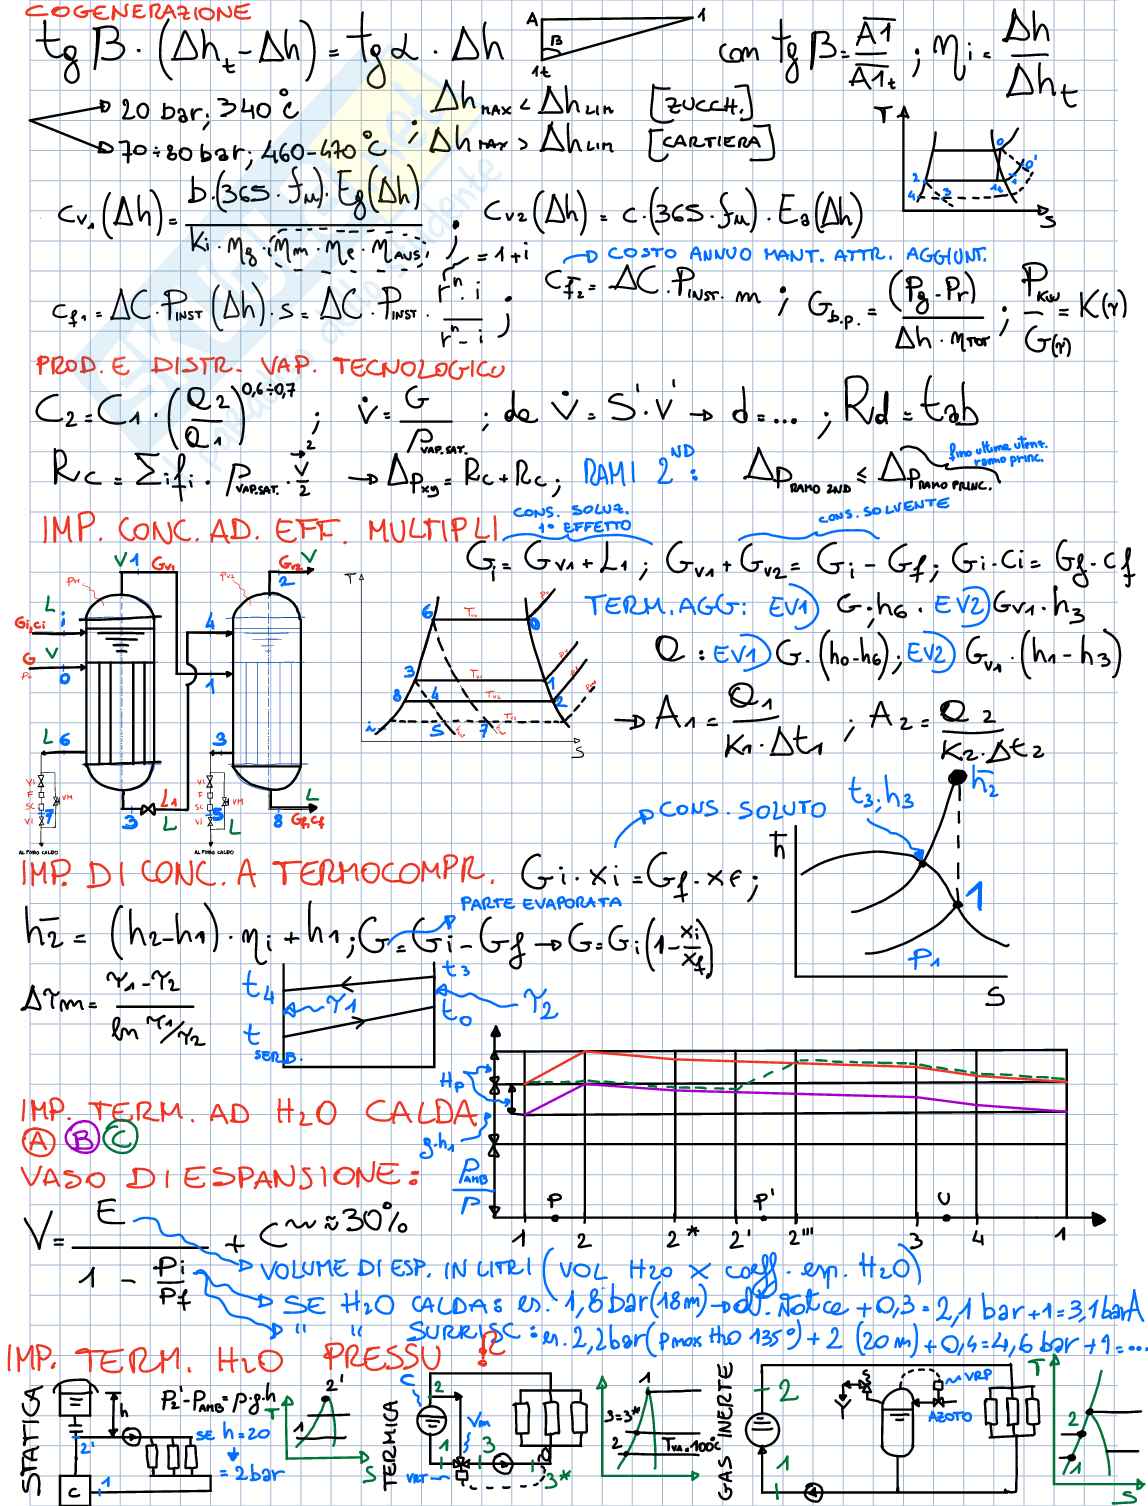 COGENERAZIONE
tg β · (Δht - Δh) = tg α · Δh
A 1 β 1t
con tg β = A1 / A1t ; ηi = Δh / Δht
20 bar; 340 °C
70÷80 bar; 460-470 °C
; Δh MAX < Δh LIM [ZUCCH.]
Δh MAX > Δh LIM [CARTIERA]
T S
cv1 (Δh) = b·(365·fu)·Eg(Δh) / Ki·ηg·(ηm·ηe·ηAUS) ; cv2 (Δh) = c·(365·fu)·Ea(Δh)
= 1+i
COSTO ANNUO MANT. ATTR. AGGIUNT.
cf1 = ΔC·PINST(Δh)·s = ΔC·PINST · r^n·i / r^n-i ;
cf2 = ΔC·PINST·m ; Gb.p. = (Pg-Pr) / Δh·ηTOT ; PKW / G(r) = K(r)
PROD. E DISTR. VAP. TECNOLOGICO
C2 = C1·(Q2/Q1)^0,6÷0,7 ; v̇ = G / ρVAP.SAT. ; da v̇ = S·v → d = ... ; Rd = tab
Rc = Σi fi · ρVAP.SAT. · v²/2 → Δpxy = Rc + Rc ; RAMI 2ND : ΔpRAMO 2ND ≤ ΔpRAMO PRINC.
fino ultima utenz. ramo princ.
IMP. CONC. AD. EFF. MULTIPLI
CONS. SOLUZ. 1° EFFETTO
CONS. SOLVENTE
Gi = Gv1 + L1 ; Gv1 + Gv2 = Gi - Gf ; Gi·ci = Gf·cf
TERM. AGG: EV1) G·h6 · EV2) Gv1·h3
Q : EV1) G·(h0-h6) ; EV2) Gv1·(h1-h3)
→ A1 = Q1 / K1·Δt1 ; A2 = Q2 / K2·Δt2
V 1 Gv1 Gv2 V 2
L Gi,ci i
G V 0
4
1
L 6
3
3 L1 L
8 L Gf,cf
VI F SC VI VM 7
VI F SC VI VM 5 L
AL POZZO CALDO
AL POZZO CALDO
T 6 0 3 1 8 4 2 i 5 7 S
t3; h3
h̄2
h̄ 1 P1 S
CONS. SOLUTO
IMP. DI CONC. A TERMOCOMPR. Gi·xi = Gf·xf ;
PARTE EVAPORATA
h̄2 = (h2-h1)·ηi + h1 ; G = Gi - Gf → G = Gi(1 - xi/xf)
Δτm = τ1-τ2 / ln τ1/τ2
t4 t3 τ1 τ2 t t0
SERB.
IMP. TERM. AD H2O CALDA
A B C
HP
g·h1
PAMB / ρ
P P' U
1 2 2* 2' 2''' 3 4 1
VASO DI ESPANSIONE:
V = E / 1 - Pi/Pf + C ~ ≈ 30%
VOLUME DI ESP. IN LITRI (VOL H2O X coeff. esp. H2O)
SE H2O CALDA: es. 1,8 bar (18m) → + 0,3 = 2,1 bar + 1 = 3,1 barA
" " SURRISC: es. 2,2 bar (pmax H2O 135°) + 2 (20 m) + 0,4 = 4,6 bar + 1 = ...
IMP. TERM. H2O PRESSU
STATICA
h
P2'-PAMB = ρ·g·h
SE h = 20
= 2 bar
2' C 1
T 2' 1 S
TERMICA
C 2 Vm 1 3 3*
VRT
1 3=3* 2 TVA=100°C
GAS INERTE
2 1
S VRP AZOTO
T 2 1 S